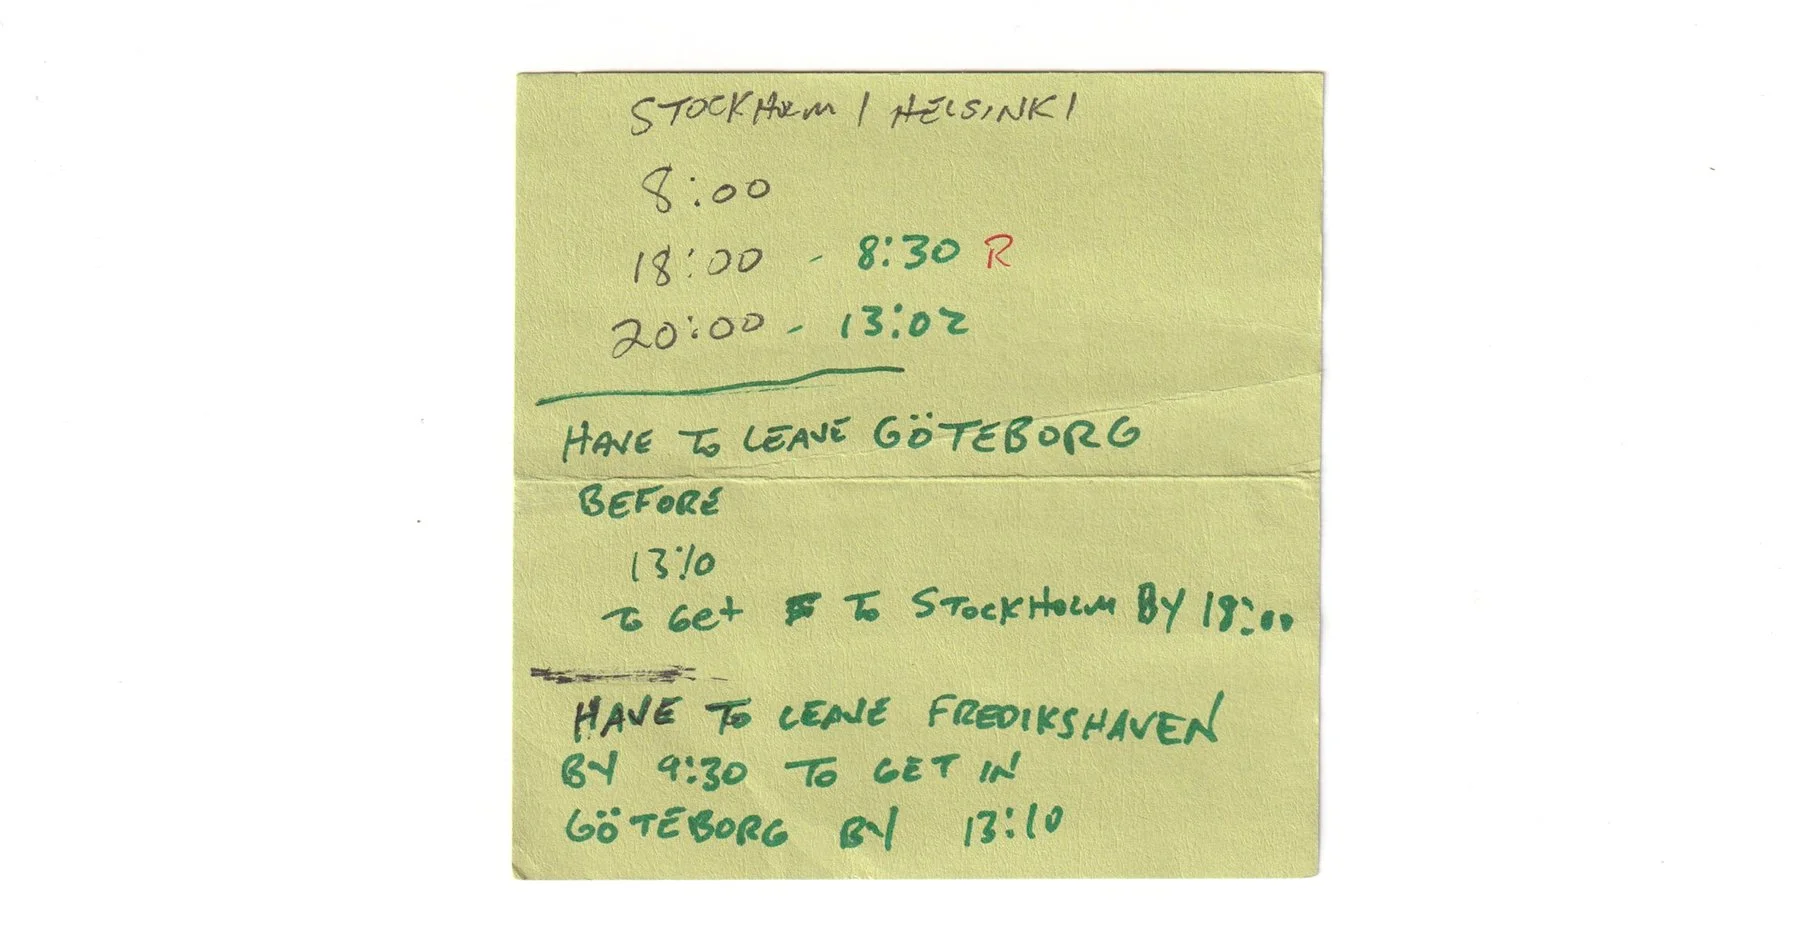 STOCKHOLM / HELSINKI
8:00
18:00 - 8:30 R
20:00 - 13:02
HAVE TO LEAVE GÖTEBORG
BEFORE
13:10
TO GET TO STOCKHOLM BY 18:00
HAVE TO LEAVE FREDIKSHAVEN
BY 9:30 TO GET IN
GÖTEBORG BY 13:10